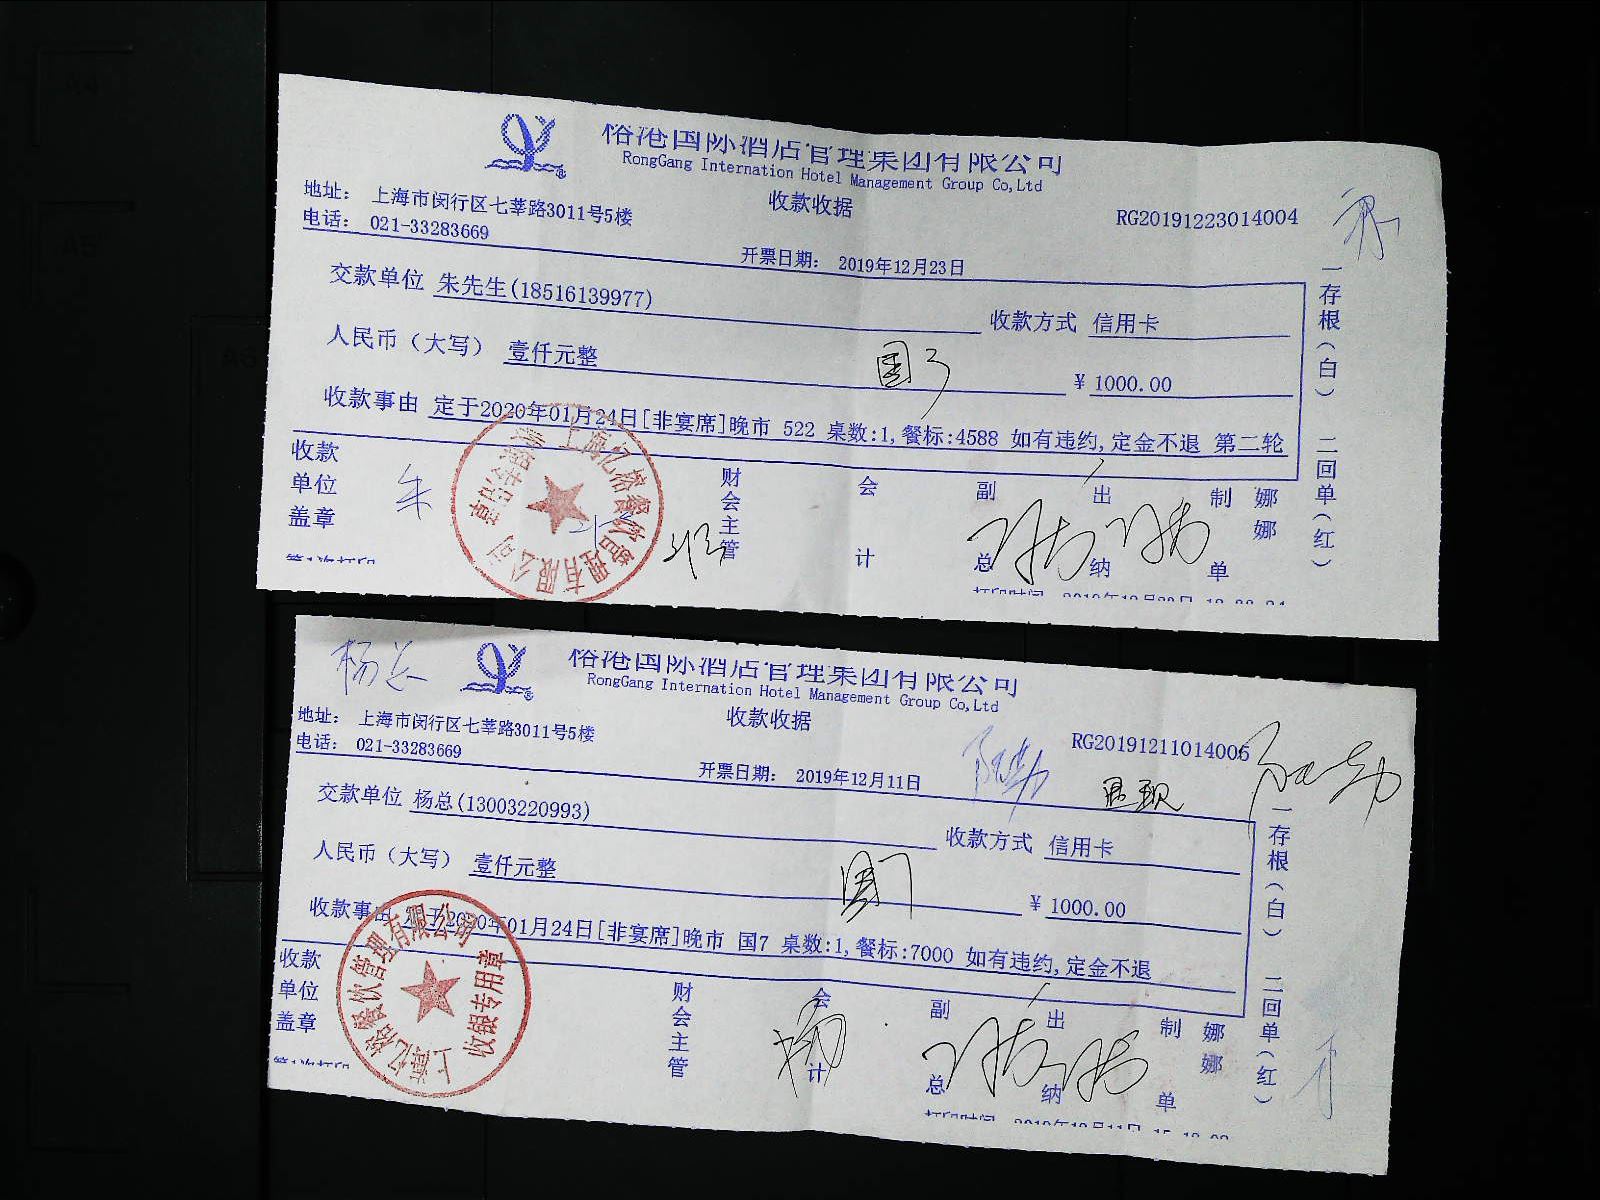 裕港国际酒店管理集团有限公司
RongGang Internation Hotel Management Group Co,Ltd
收款收据
地址： 上海市闵行区七莘路3011号5楼
电话： 021-33283669
RG20191223014004
开票日期： 2019年12月23日
交款单位 朱先生(18516139977)
收款方式 信用卡
人民币（大写） 壹仟元整
¥ 1000.00
收款事由 定于2020年01月24日[非宴席]晚市 522 桌数:1,餐标:4588 如有违约,定金不退 第二轮
收款单位盖章
朱
财会主管
会计
副总
出纳
制单
娜娜
一存根(白) 二回单(红)
上海亿裕餐饮管理有限公司
收银专用章
第1次打印
打印时间
杨总
裕港国际酒店管理集团有限公司
RongGang Internation Hotel Management Group Co,Ltd
收款收据
地址： 上海市闵行区七莘路3011号5楼
电话： 021-33283669
RG20191211014006
开票日期： 2019年12月11日
交款单位 杨总(13003220993)
收款方式 信用卡
人民币（大写） 壹仟元整
¥ 1000.00
收款事由 定于2020年01月24日[非宴席]晚市 国7 桌数:1,餐标:7000 如有违约,定金不退
收款单位盖章
财会主管
会计
副总
出纳
制单
娜娜
一存根(白) 二回单(红)
上海亿裕餐饮管理有限公司
收银专用章
第1次打印
打印时间